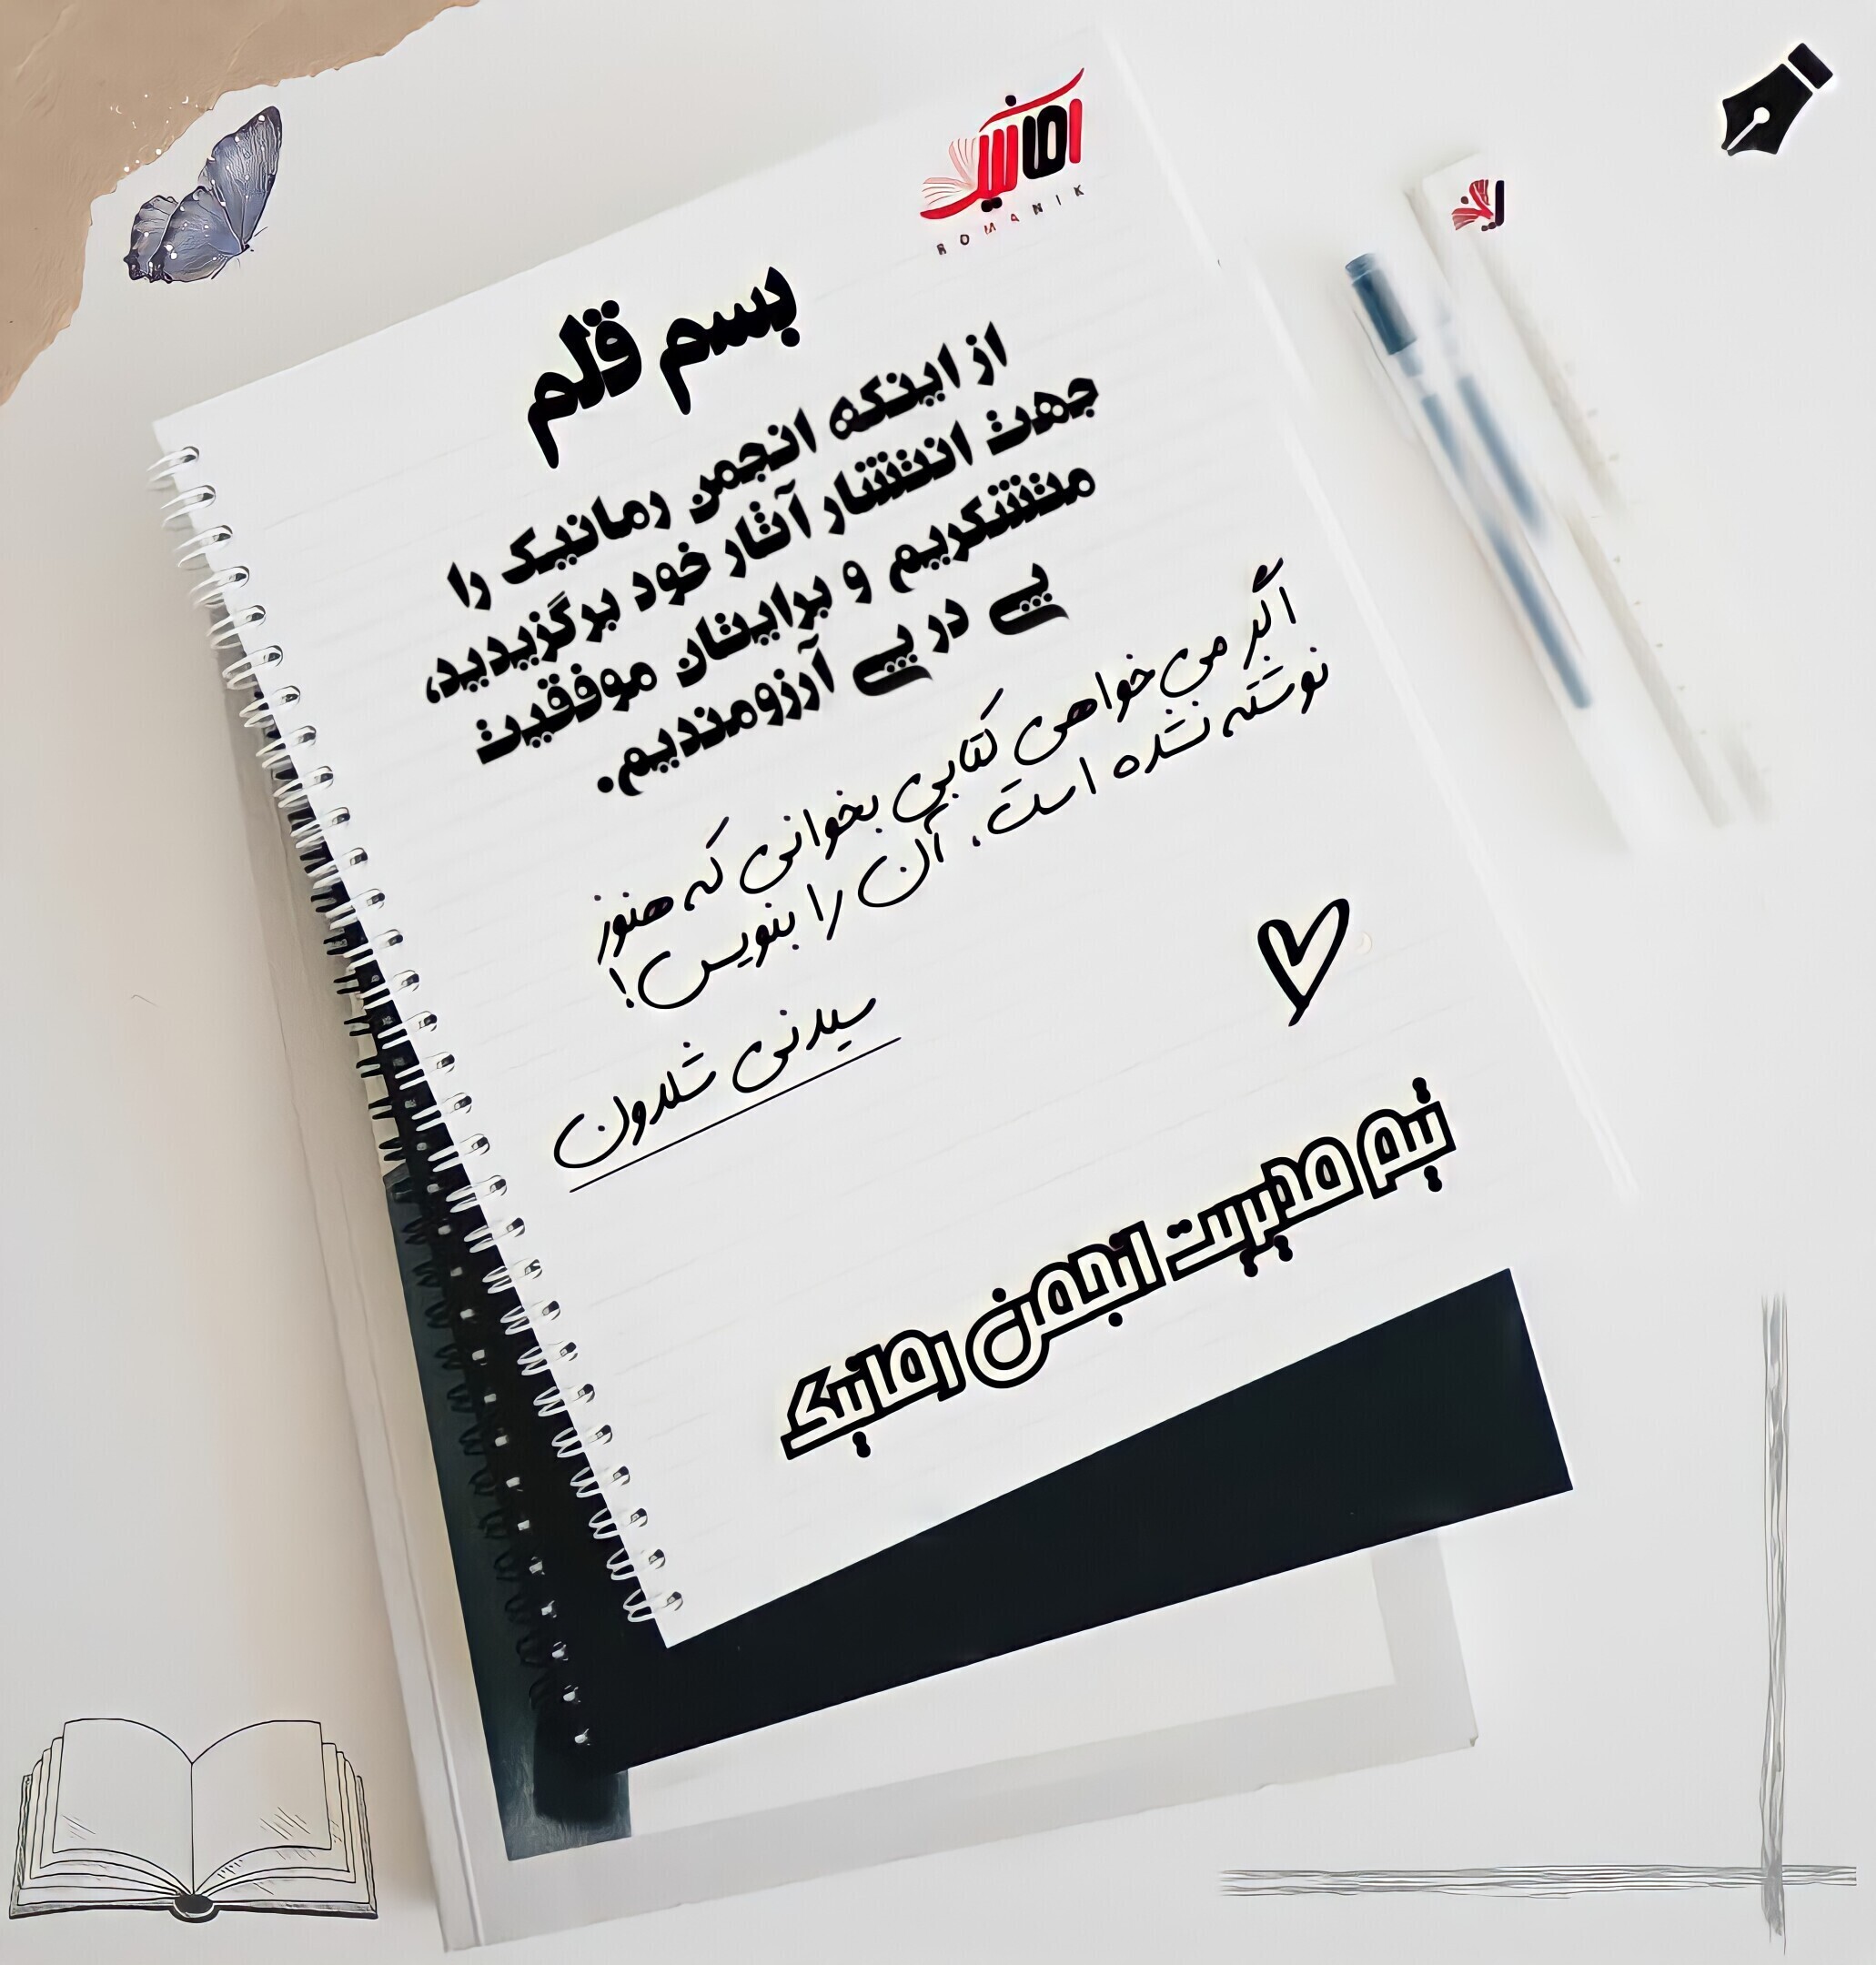 رمانیک
ROMANIK
بسم قلم
از اینکه انجمن رمانیک را
جهت انتشار آثار خود برگزیدید،
متشکریم و برایتان موفقیت
پی در پی آرزومندیم.
اگر می‌خواهی کتابی بخوانی که هنوز
نوشته نشده است. آن را بنویس!
سیدنی شلدون
تیم مدیریت انجمن رمانیک